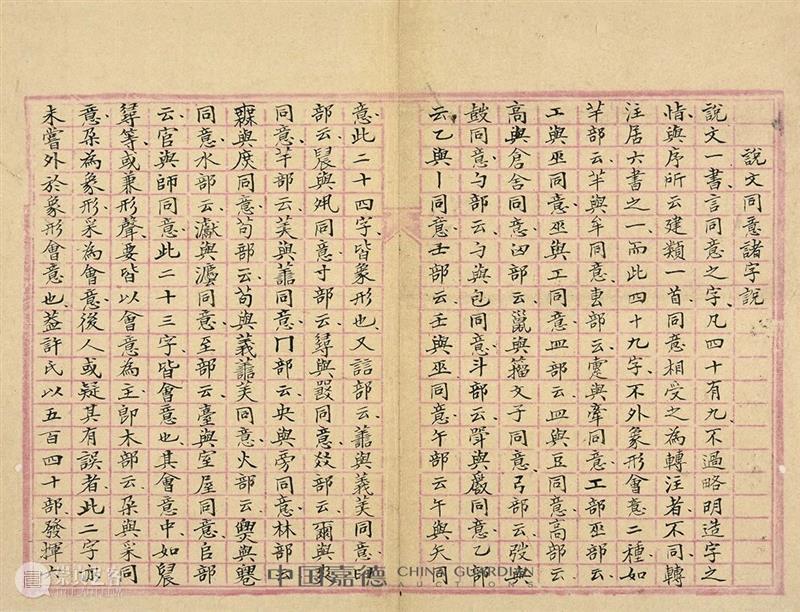 說文同意諸字說
說文一書言同意之字凡四十有九不過略明造字之
惰與序所云建類一首同意相受之為轉注者不同轉
注居六書之一而此四十九字不外象形會意二種如
羊部云羊與牟同意叀部云疐與牽同意工部巫部云
工與巫同意巫與工同意皿部云皿與豆同意高部云
高與倉舍同意囟部云巤與籀文子同意弓部云弢與
鼓同意勹部云勹與包同意斗部云斝與爵同意乙部
云乙與丨同意壬部云壬與巫同意午部云午與矢同
意此二十四字皆象形也又誩部云譱與義美同意
部云䢅與夙同意寸部云尋與㗊同意㸚部云爾與爽
同意羊部云美與譱同意冂部云央與旁同意林部
與庶同意茍部云茍與義譱美同意火部云與
同意水部云灋同意至部云臺與室屋同意𠂤部
云官與師同意此二十三字皆會意也其會意中如䢅
尋等或兼形聲要皆以會意為主即木部云朵與采同
意朵為象形采為會意後人或疑其有誤者此二字亦
未嘗外於象形會意也蓋許氏以五百四十部發揮六
中国嘉德 CHINA GUARDIAN
AUCTIONS